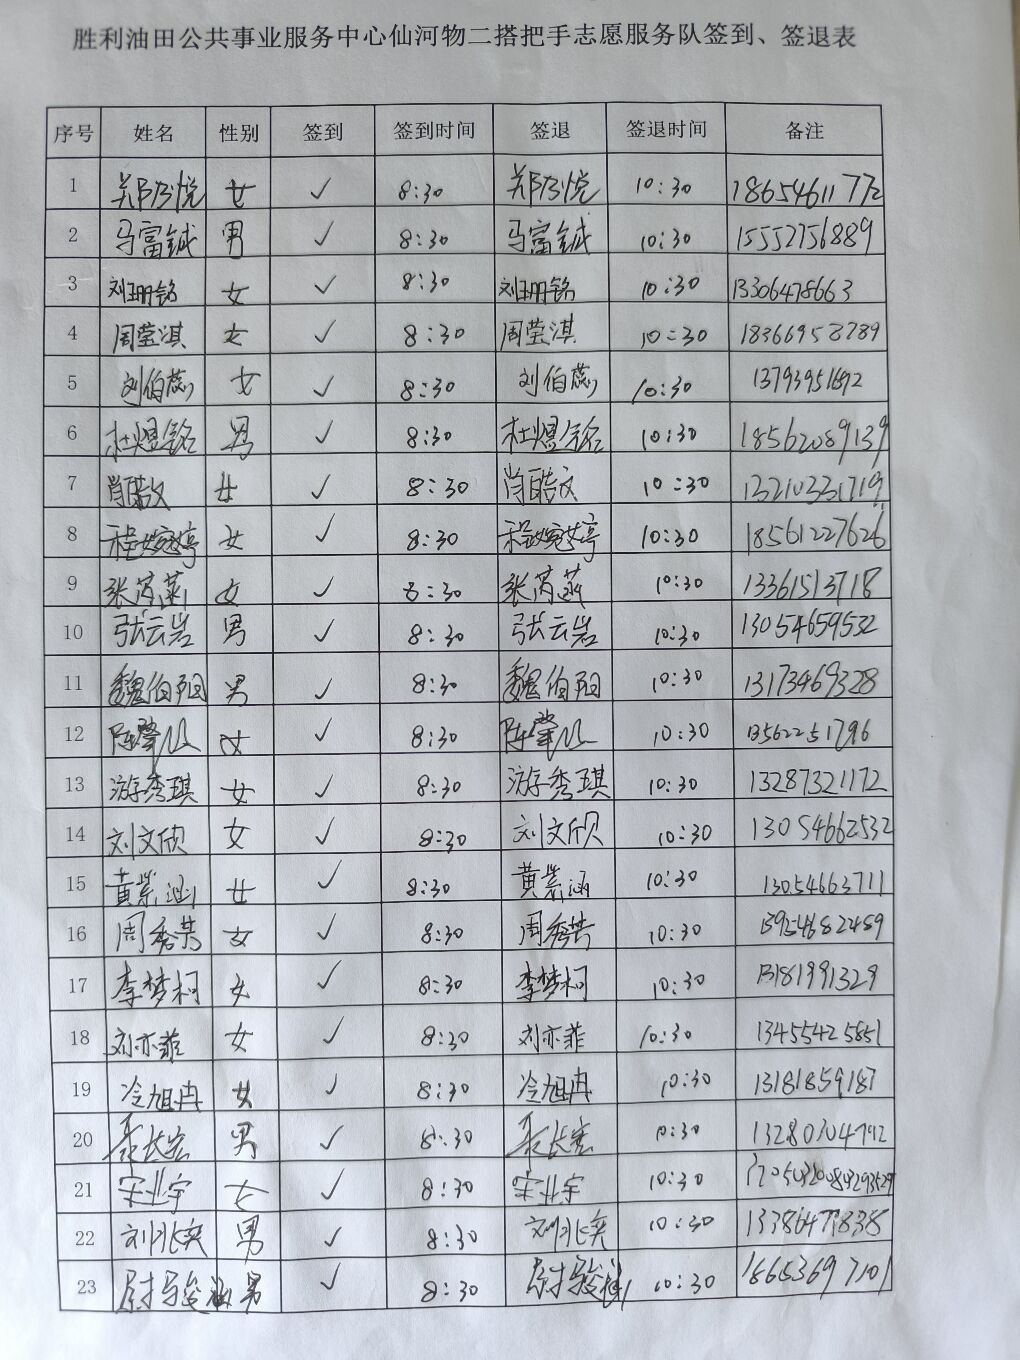 胜利油田公共事业服务中心仙河物二搭把手志愿服务队签到、签退表
序号 姓名 性别 签到 签到时间 签退 签退时间 备注
1 郑乃悦 女 ✓ 8:30 郑乃悦 10:30 18654611772
2 马富铖 男 ✓ 8:30 马富铖 10:30 15552756889
3 刘珊铭 女 ✓ 8:30 刘珊铭 10:30 13306478663
4 周莹淇 女 ✓ 8:30 周莹淇 10:30 18366958789
5 刘伯蕊 女 ✓ 8:30 刘伯蕊 10:30 13793951692
6 杜煜铭 男 ✓ 8:30 杜煜铭 10:30 18562089139
7 肖皓文 女 ✓ 8:30 肖皓文 10:30 13210331719
8 程婉婷 女 ✓ 8:30 程婉婷 10:30 18561227626
9 张芮菡 女 ✓ 8:30 张芮菡 10:30 13361513718
10 张云岩 男 ✓ 8:30 张云岩 10:30 13054659532
11 魏伯阳 男 ✓ 8:30 魏伯阳 10:30 13173469328
12 陈肇 女 ✓ 8:30 陈肇 10:30 13562251796
13 游秀琪 女 ✓ 8:30 游秀琪 10:30 13287321172
14 刘文欣 女 ✓ 8:30 刘文欣 10:30 13054662532
15 黄紫涵 女 ✓ 8:30 黄紫涵 10:30 13054663711
16 周秀芸 女 ✓ 8:30 周秀芸 10:30 13954682489
17 李梦柯 女 ✓ 8:30 李梦柯 10:30 13181991329
18 刘亦菲 女 ✓ 8:30 刘亦菲 10:30 13455425851
19 冷旭冉 女 ✓ 8:30 冷旭冉 10:30 13181859187
20 长宏 男 ✓ 8:30 长宏 10:30 13280304792
21 宋业宇 女 ✓ 8:30 宋业宇 10:30
22 刘兆奕 男 ✓ 8:30 刘兆奕 10:30 13386479838
23 尉骏 男 ✓ 8:30 尉骏 10:30 18653697101